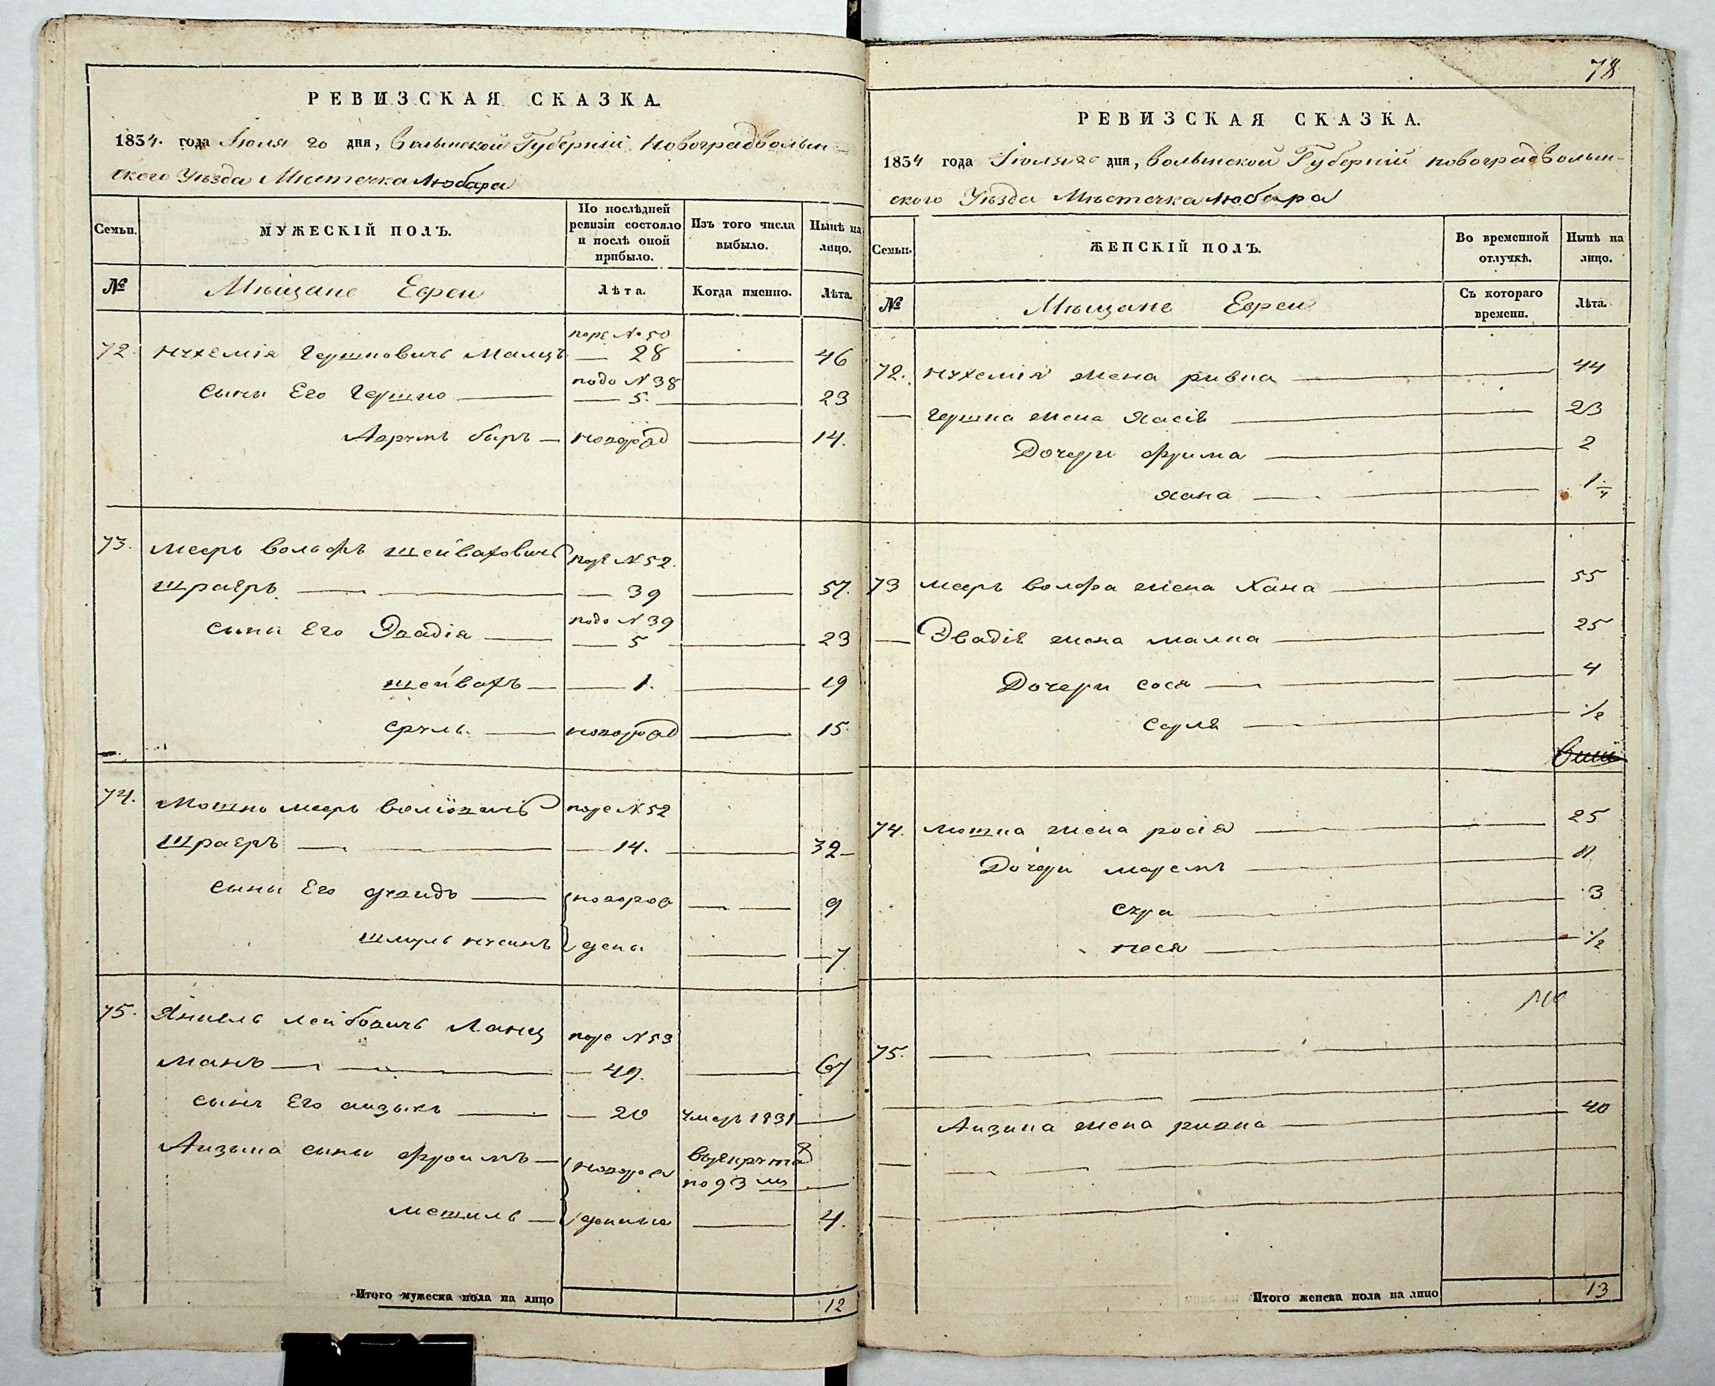 РЕВИЗСКАЯ СКАЗКА.
1834. года Іюля 20 дня, Волынской Губерніи Новоградволын-
ского Уѣзда Мѣстечка Любара
Семьи.
МУЖЕСКІЙ ПОЛЪ.
По послѣдней ревизіи состояло и послѣ оной прибыло.
Изъ того числа выбыло.
Нынѣ на лицо.
№
Мѣщане Евреи
Лѣта.
Когда именно.
Лѣта.
№ 50
72 Нухемія Гершковичъ 28 46
№ 38
сыны Его Гершко 5. 23
Аврумъ беръ новород 14.
73. Мееръ Вольфъ Шейваховичъ № 52.
Шраеръ 39 57.
№ 39
сыны Его Эвадія 5 23
Шейвахъ 1. 19
Сруль новород 15
74. Мошко Мееръ № 52
Шраеръ 14. 32
сыны Его новорож 9
Шмуль Нусинъ дены 7
75. Янкель Лейбовичъ Ланц № 53
манъ 49. 67
сынъ Его Аизыкъ 20 умеръ 1831
Аизыка сыны Фроимъ
4.
Итого мужеска пола на лицо 12
78
РЕВИЗСКАЯ СКАЗКА.
1834 года Іюля 20 дня, Волынской Губерніи Новоградволын-
ского Уѣзда Мѣстечка Любара
Семьи.
ЖЕНСКІЙ ПОЛЪ.
Во временной отлучкѣ.
Нынѣ на лицо.
№
Мѣщане Евреи
Съ котораго времени.
Лѣта.
72. Нухемія жена Ривка 44
Гершка жена Хасія 23
Дочери Фрима 2
Хана 1/4
73 Мееръ Волфа жена Хана 55
Эвадія жена Малка 25
Дочери Сося 4
Сурля 1/2
74. Мошка жена Росія 25
Дочери
Сура 3
Неся 1/2
75.
Аизика жена Ривка 40
Итого женска пола на лицо 13